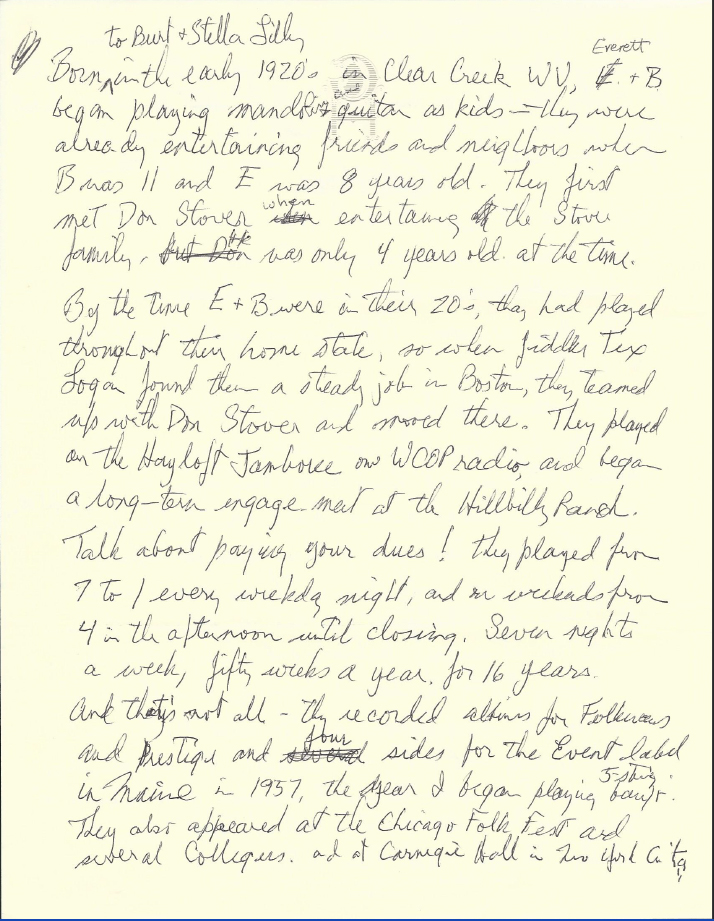 to Burt + Stella Lilly
Born in the early 1920's in Clear Creek WV, Everett E. + B
began playing mandolin and guitar as kids - they were
already entertaining friends and neighbors when
B was 11 and E was 8 years old. They first
met Don Stover when entertaining the Stover
family. but Don was only 4 years old. at the time.
By the time E + B were in their 20's, they had played
throughout their home state, so when fiddler Tex
Logan found them a steady job in Boston, they teamed
up with Don Stover and moved there. They played
on the Hayloft Jamboree on WCOP radio, and began
a long-term engagement at the Hillbilly Ranch.
Talk about paying your dues! they played from
7 to 1 every weekday night, and on weekends from
4 in the afternoon until closing. Seven nights
a week, fifty weeks a year. for 16 years.
And that's not all - They recorded albums for Folkways
and Prestige and several four sides for the Event label
in Maine in 1957, the year I began playing 5-string banjo.
They also appeared at the Chicago Folk Fest and
several Colleges. and at Carnegie Hall in New York City